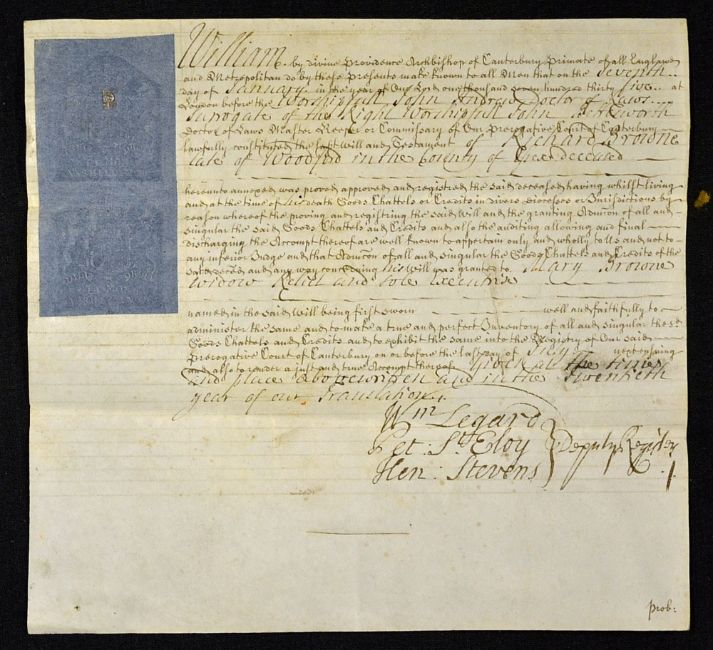 William
by divine Providence Archbishop of Canterbury Primate of all England
and Metropolitan do by these presents make known to all Men that on the Seventh
day of January in the year of Our Lord one thousand seven hundred thirty five at
London before the Worshipfull John Andrew Doctor of Laws
Surrogate of the Right Worshipfull John
Doctor of Laws Master Keeper or Commissary of Our Prerogative Court of Canterbury
lawfully constituted the last Will and Testament of Richard Browne
late of Woodford in the County of Essex deceased
hereunto annexed was proved approved and registred the said deceased having whilst living
and at the time of his death Goods Chattels or Credits in divers Dioceses or Jurisdictions by
reason whereof the proving and registring the said Will and the granting Admĩon of all and
singular the said Goods Chattels and Credits and also the auditing allowing and final
discharging the Accompt thereof are well known to appertain only and wholly to Us and not to
any inferior Judge and that Admĩon of all and singular the Goods Chattels and Credits of the
said deced and any way concerning his Will was granted to Mary Browne
Widow Relict and sole Executrix
named in the said Will being first sworn well and faithfully to
administer the same and to make a true and perfect Inventory of all and singular the sd
Goods Chattels and Credits and to exhibit the same into the Registry of Our said
Prerogative Court of Canterbury on or before the last day of July next ensuing
and also to render a just and true Accompt thereof Given at the time
and place abovewritten and in the Twentieth
year of our Translation
Wm Legard
Pet: St Eloy
Hen: Stevens
Deputy Registers
Prob: